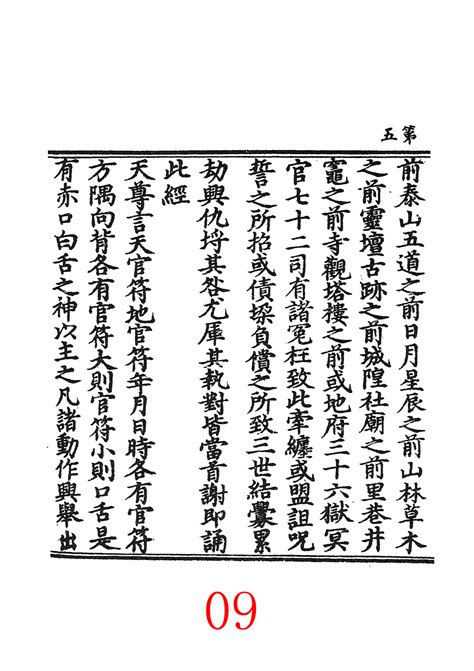 第五
前泰山五道之前日月星辰之前山林草木
之前靈壇古跡之前城隍社廟之前里巷井
竈之前寺觀塔樓之前或地府三十六獄冥
官七十二司有諸冤枉致此牽纏或盟詛呪
誓之所招或債垜負償之所致三世結釁累
劫興仇埒其咎尤厙其執對皆當首謝即誦
此經
天尊言天官符地官符年月日時各有官符
方隅向背各有官符大則官符小則口舌是
有赤口白舌之神以主之凡諸動作興舉出
09